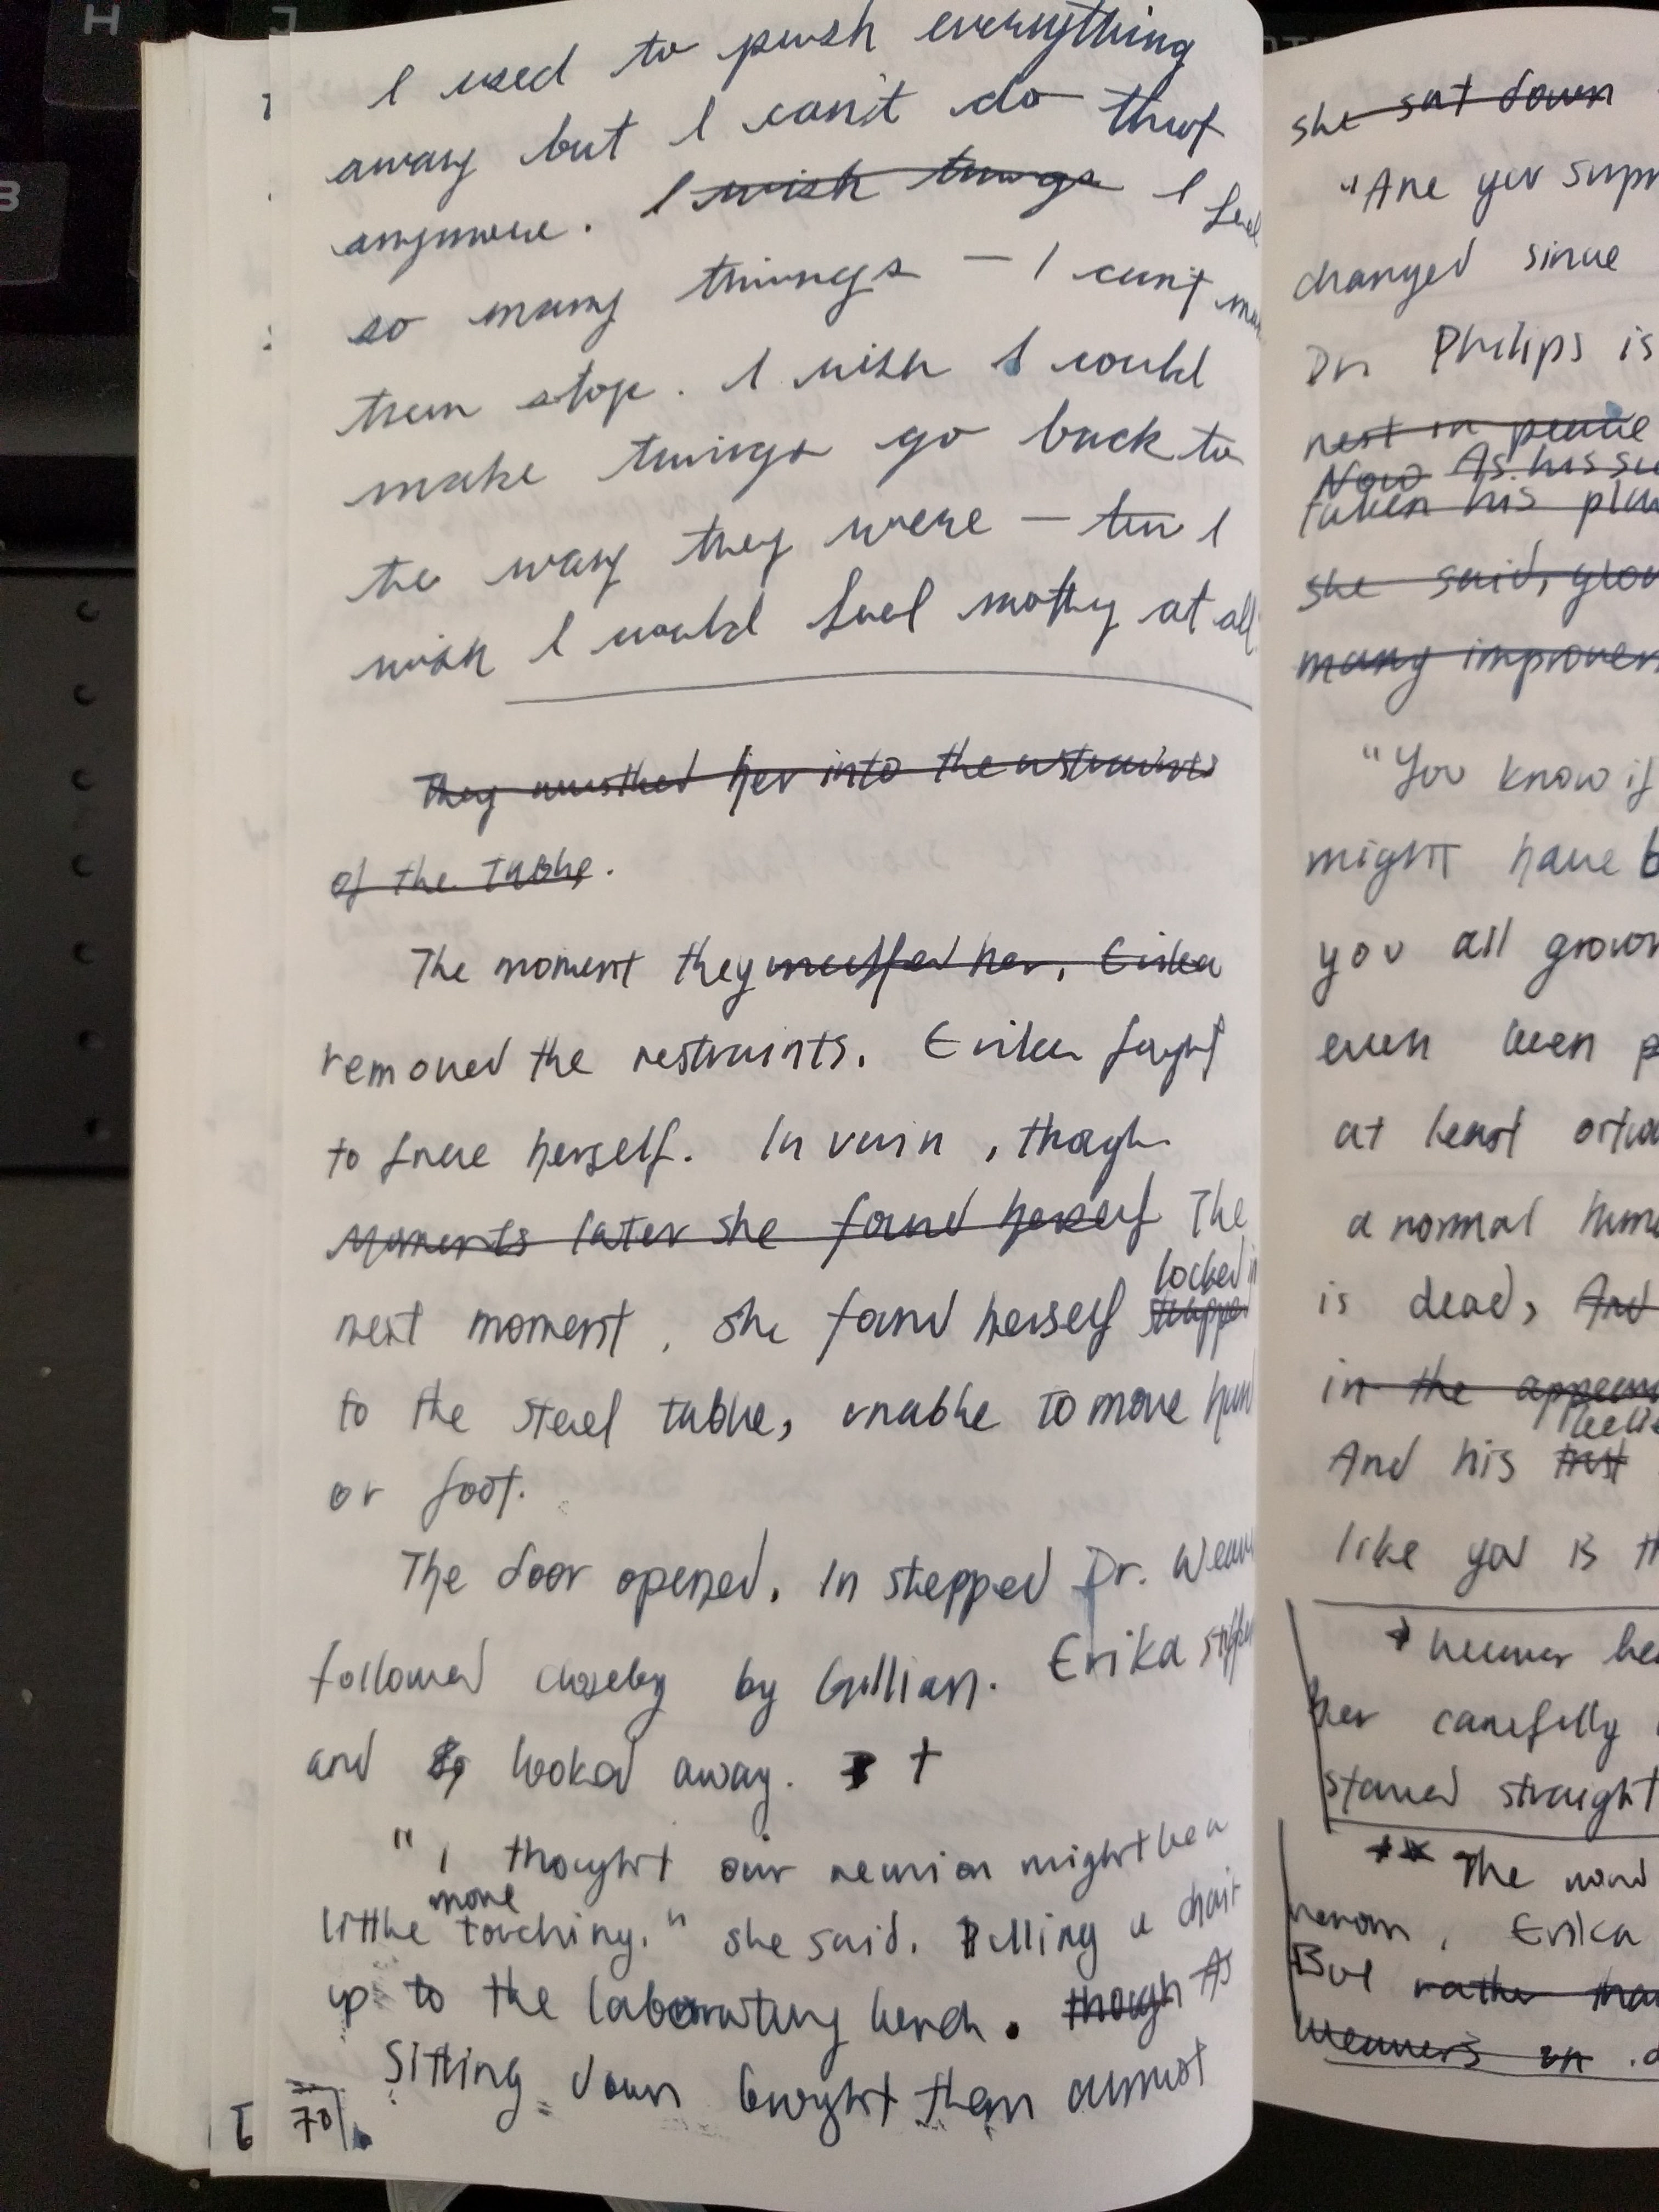 I used to push everything
away but I can't do that
anymore. I wish things I feel
so many things — I can't
them stop. I wish I could
make things go back to
the way they were — then I
wish I would feel nothing at all
They her into the restraints
of the table.
The moment they her, Erika
removed the restraints. Erika fought
to free herself. In vain, though
Moments later she found herself The
locked in
next moment, she found herself strapped
to the steel table, unable to move hand
or foot.
The door opened. In stepped Dr. Weaver
followed closely by Gillian. Erika
and looked away. †
"I thought our reunion might be a
more
little touching." she said. Pulling a chair
up to the laboratory bench. though As
Sitting down brought them almost
70
she sat down
"Are you
changed since
Dr Philips is
rest in peace
Now As his
taken his
she said,
many
"You know if
might have
you all grown
even been
at least
a normal
is dead, And
in the
And his trust
like you is
her carefully
stared straight
** The
Erika
But rather than
Weaver's in